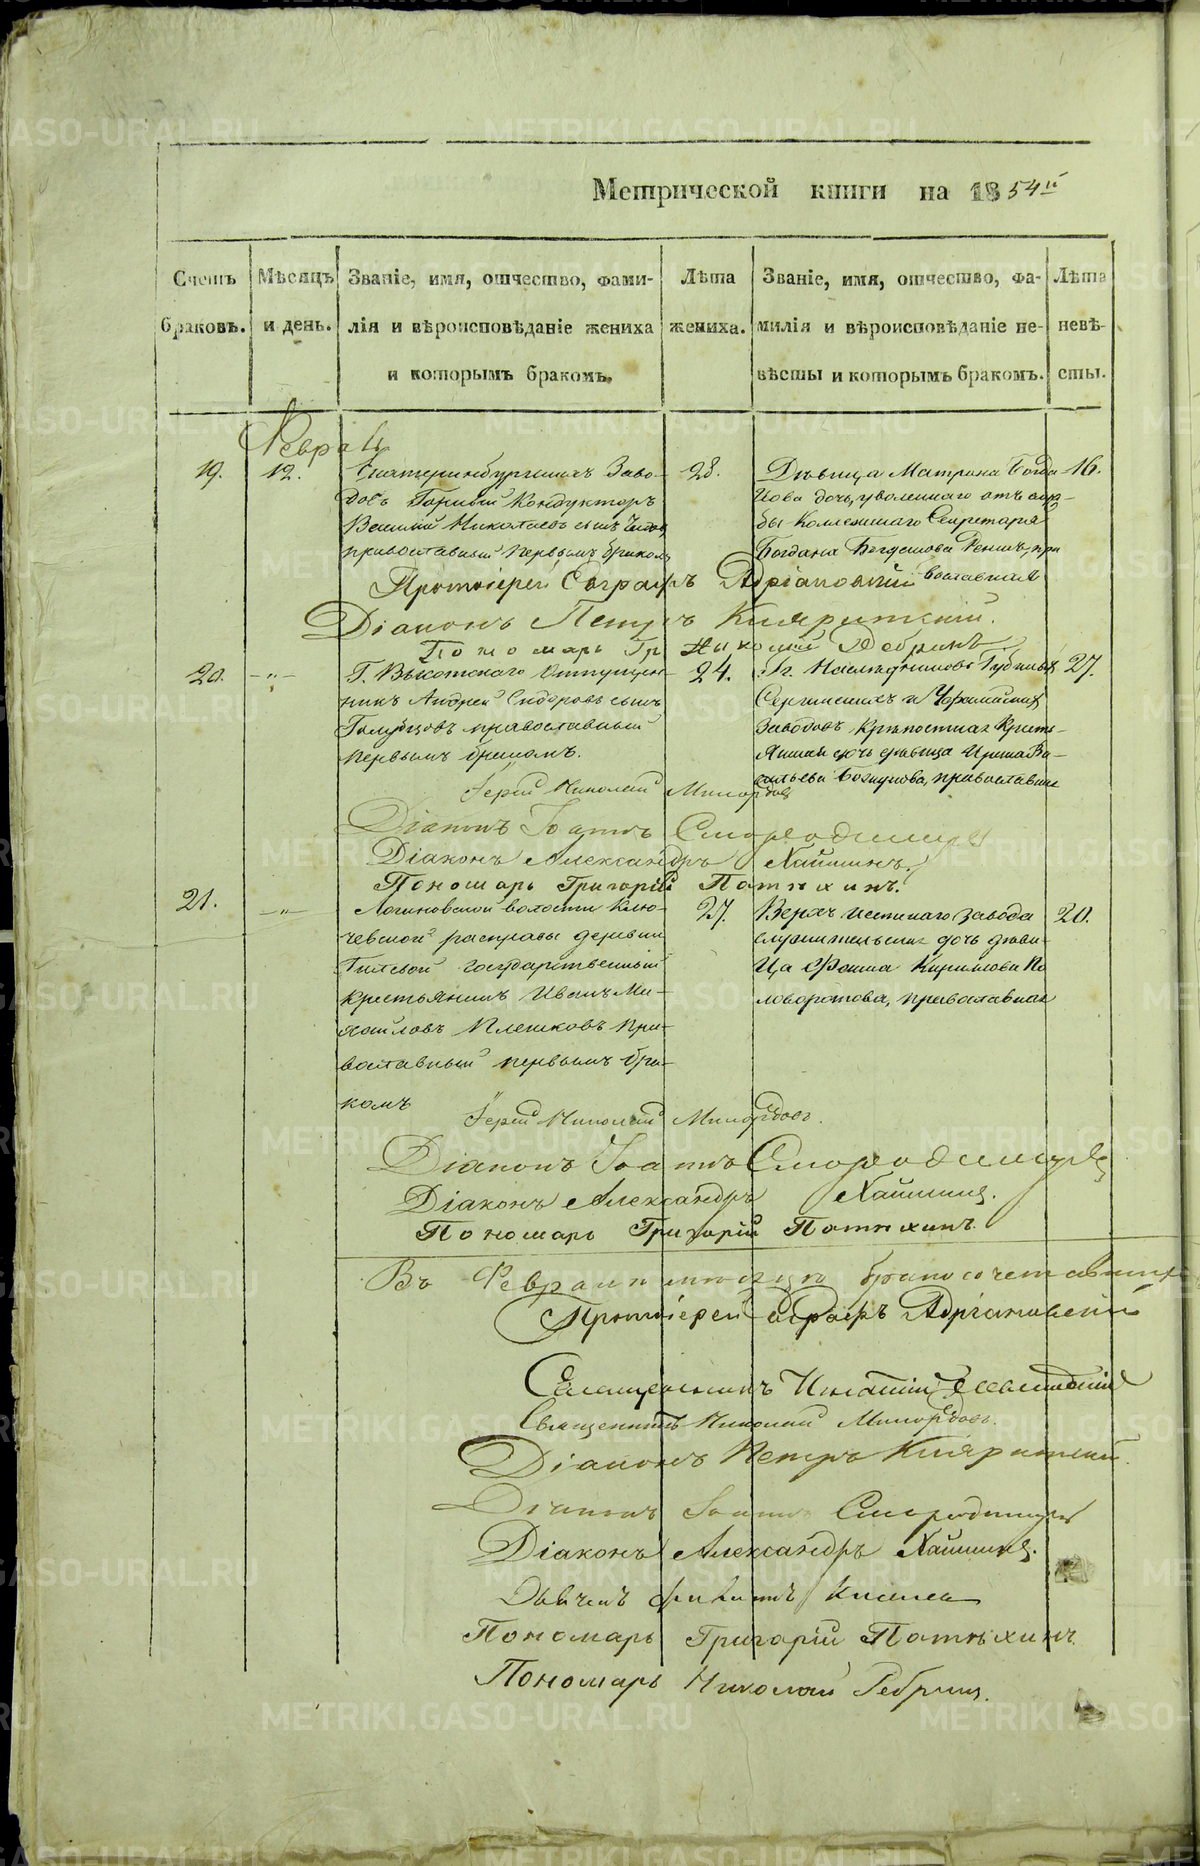 Метрической книги на 1854й
Счетъ браковъ.
Мѣсяцъ и день.
Званіе, имя, отчество, фами-
лія и вѣроисповѣданіе жениха
и которымъ бракомъ.
Лѣта
жениха.
Званіе, имя, отчество, фа-
милія и вѣроисповѣданіе не-
вѣсты и которымъ бракомъ.
Лѣта
невѣ-
сты.
19.
12.
Екатеринбургскихъ Заво-
довъ Горный Кондукторъ
Василій Николаевъ сынъ
православный первымъ бракомъ
28.
Дѣвица Матрона Богда-
нова дочь, уволеннаго отъ служ-
бы Коллежскаго Секретаря
Богдана
православная
16.
Протоіерей Евграфъ Адріановскій
Діаконъ Петръ
Пономарь Николай
20.
-„-
Г. Высотскаго Отпущен-
никъ Андрей Сидоровъ сынъ
Голубцовъ православный
первымъ бракомъ.
24.
Гг. Наслѣдниковъ Губиныхъ
Сергинскихъ и Уфалейскихъ
Заводовъ крѣпостная Кресть-
янская дочь дѣвица Ирина Ва-
сильева православная
27.
Іерей Николай Милордовъ
Діаконъ Іоаннъ Смородинцевъ
Діаконъ Александръ Хаминъ.
Пономарь Григорій Потѣхинъ.
21.
-„-
Логиновской волости Клю-
чевской расправы деревни
Гилевой государственный
крестьянинъ Иванъ Ми-
хайловъ Плешковъ пра-
вославный первымъ бра-
комъ
27.
Верхъ Исетскаго завода
служительская дочь дѣви-
ца Ѳекла Кирилова По
ловоротова, православная
20.
Іерей Николай Милордовъ.
Діаконъ Іоаннъ Смородинцевъ
Діаконъ Александръ Хаминъ.
Пономарь Григорій Потѣхинъ.
Въ Февралѣ мѣсяцѣ бракосочетавшихъ
Протоіерей Евграфъ Адріановскій
Священникъ Игнатій
Священникъ Николай Милордовъ.
Діаконъ Петръ
Діаконъ Іоаннъ Смородинцевъ
Діаконъ Александръ Хаминъ.
Дьячекъ Киселевъ
Пономарь Григорій Потѣхинъ.
Пономарь Николай
METRIKI.GASO-URAL.RU